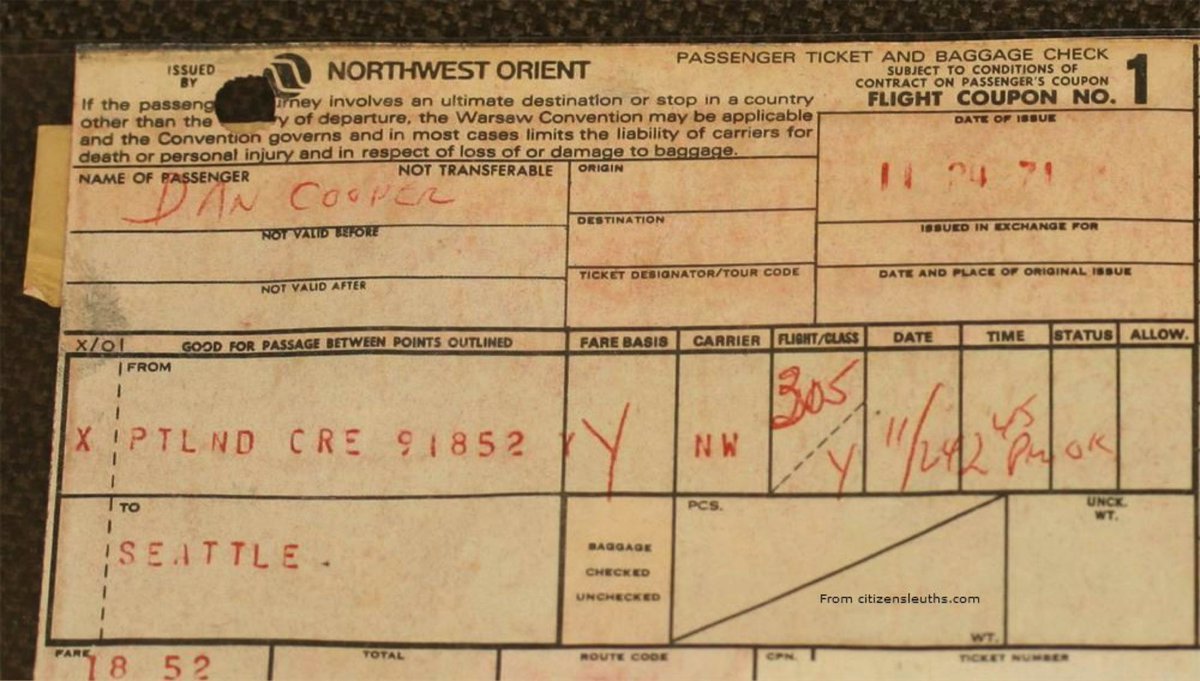 ISSUED BY
NORTHWEST ORIENT
PASSENGER TICKET AND BAGGAGE CHECK
SUBJECT TO CONDITIONS OF
CONTRACT ON PASSENGER'S COUPON
FLIGHT COUPON NO. 1
If the passeng urney involves an ultimate destination or stop in a country
other than the y of departure, the Warsaw Convention may be applicable
and the Convention governs and in most cases limits the liability of carriers for
death or personal injury and in respect of loss of or damage to baggage.
DATE OF ISSUE
11 24 71
NAME OF PASSENGER NOT TRANSFERABLE
DAN COOPER
ORIGIN
DESTINATION
ISSUED IN EXCHANGE FOR
NOT VALID BEFORE
TICKET DESIGNATOR/TOUR CODE
DATE AND PLACE OF ORIGINAL ISSUE
NOT VALID AFTER
X/O GOOD FOR PASSAGE BETWEEN POINTS OUTLINED FARE BASIS CARRIER FLIGHT/CLASS DATE TIME STATUS ALLOW.
FROM
X PTLND CRE 91852 Y Y NW 305 Y 11/24 2 45 PM OK
TO
SEATTLE.
BAGGAGE
CHECKED
UNCHECKED
PCS.
WT.
UNCK.
WT.
From citizensleuths.com
FARE TOTAL ROUTE CODE CPN. TICKET NUMBER
18 52